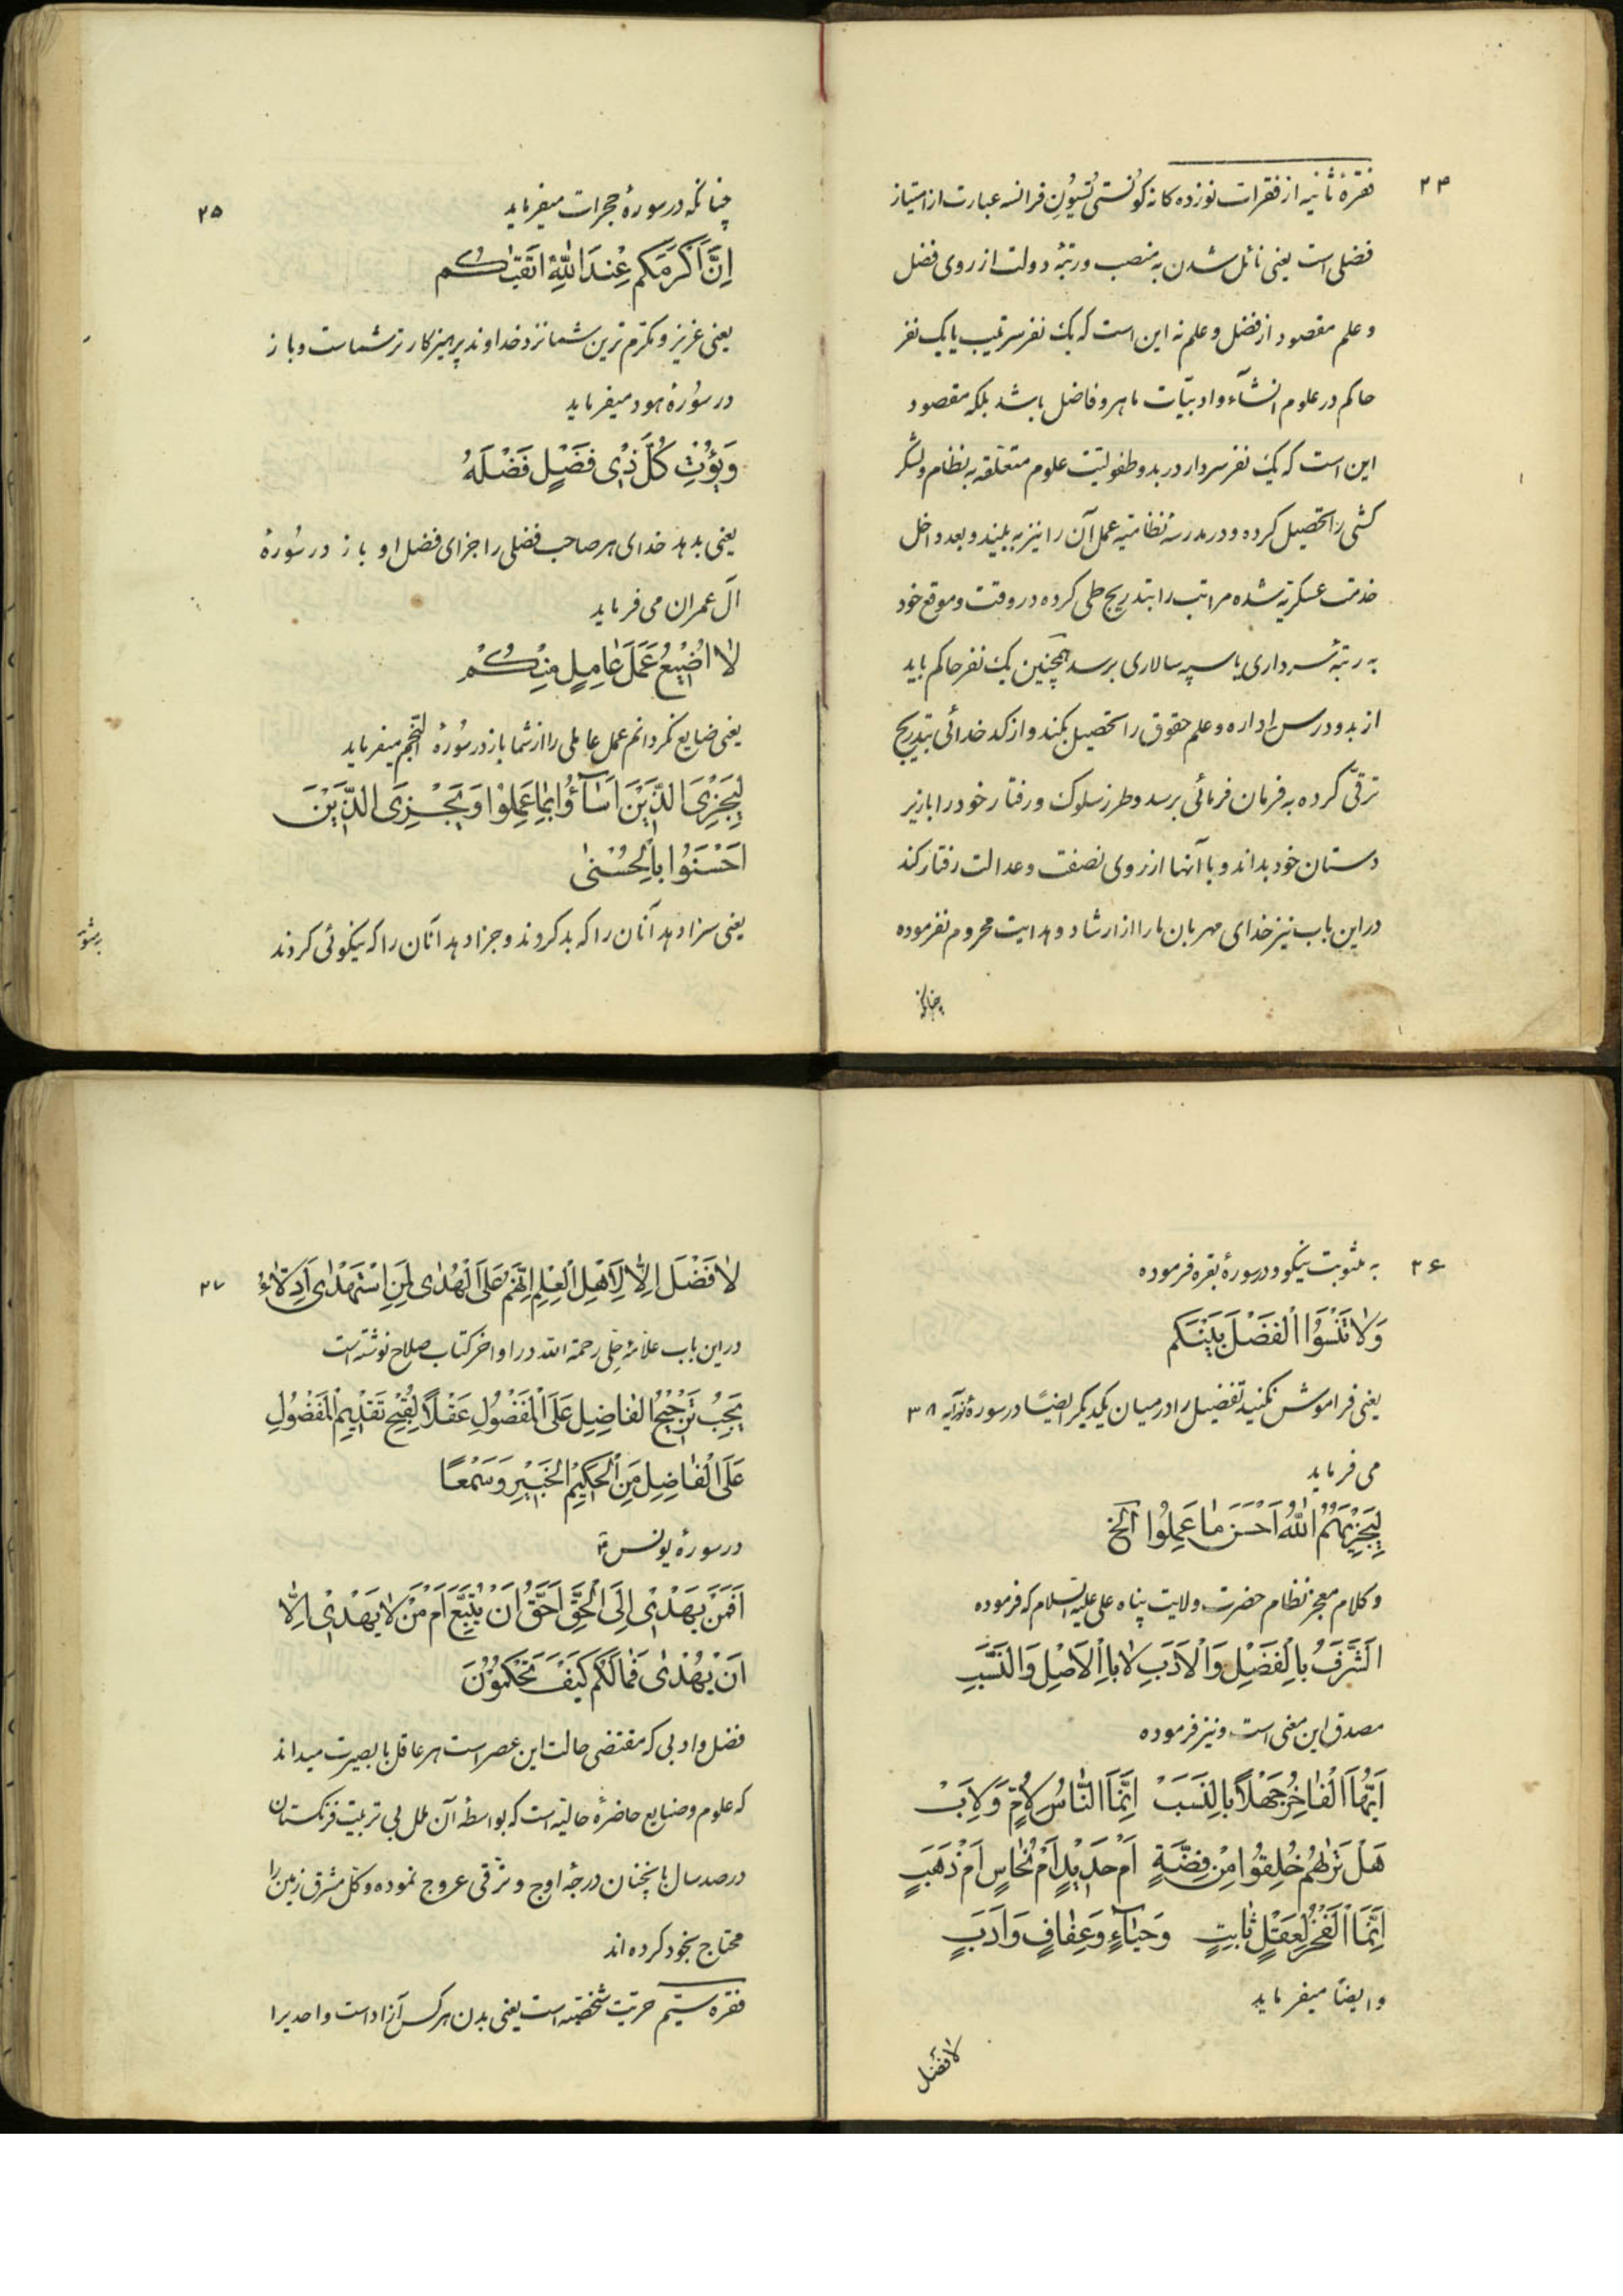 ۲۴
فقرهٔ ثانیه از فقرات نوزده کانه کُونستی تُسیُونِ فرانسه عبارت از امتیاز
فضلی است یعنی نائل شدن به منصب و رتبهٔ دولت از روی فضل
و علم مقصود از فضل و علم نه این است که یک نفر سرتیپ یا یک نفر
حاکم در علوم انشآء و ادبیّات ماهر و فاضل باشد بلکه مقصود
این است که یک نفر سردار در بدو طفولیّت علوم متعلّقه به نظام و لشگر
کشی را تحصیل کرده و در مدرسهٔ نظامیّه عمل آن را نیز به بیند و بعد داخل
خدمت عسکریّه شده مراتب را بتدریج طی کرده در وقت و موقع خود
به رتبهٔ سرداری یا سپه سالاری برسد همچنین یک نفر حاکم باید
از بدو درس اداره و علم حقوق را تحصیل بکند و از کدخدائی بتدریج
ترقّی کرده به فرمان فرمائی برسد و طرز سلوک و رفتار خود را با زیر
دستان خود بداند و با آنها از روی نصفت و عدالت رفتار کند
در این باب نیز خدای مهربان ما را از ارشاد و هدایت محروم نفرموده
چنانکه
۲۵
چنانکه در سورهٔ حجرات میفرماید
اِنَّ اَکْرَمَکُم عِنْدَ اللّٰهِ اَتقیٰکُم
یعنی عزیز و مکرّم ترین شما نزد خداوند پرهیزکارتر شماست و باز
در سُورهٔ هود میفرماید
وَیُؤْتِ کُلَّ ذِی فَضْلٍ فَضْلَهُ
یعنی بدهد خدای هر صاحب فضلی را جزای فضل او باز در سُورهٔ
آل عمران می فرماید
لاٰ اُضِیْعُ عَمَلَ عٰامِلٍ مِنْکُمْ
یعنی ضایع نگردانم عمل عاملی را از شما باز در سُورهٔ النّجم میفرماید
لِیَجْزِیَ الَّذِیْنَ اَسٰآؤُا بِمٰا عَمِلُوْا وَیَجْزِیَ الَّذِیْنَ
اَحْسَنُوْا بِالْحُسْنیٰ
یعنی سزا دهد آنان را که بد کردند و جزا دهد آنان را که نیکوئی کردند
۲۶
به مثوبت نیکو و در سورهٔ بقره فرموده
وَلاٰ تَنْسَوُا الْفَضْلَ بَیْنَکُم
یعنی فراموش نکنید تفضیل را در میان یکدیگر ایضًا در سورهٔ نور آیه ۳۸
می فرماید
لِیَجْزِیَهُمُ اللّٰهُ اَحْسَنَ مٰا عَمِلُوا الخ
و کلام معجز نظام حضرت ولایت پناه علی علیه السلام که فرموده
اَلشَّرَفُ بِالْفَضْلِ وَالْاَدَبِ لاٰ بِالْاَصْلِ وَالنَّسَبِ
مصدق این معنی است و نیز فرموده
اَیُّهَا الْفٰاخِرُ جَهْلاً بِالنَّسَبْ اِنَّمَا النّٰاسُ لِاُمٍّ وَلِاَبْ
هَلْ تَرٰاهُمْ خُلِقُوا مِنْ فِضَّةٍ اَمْ حَدِیْدٍ اَمْ نُحٰاسٍ اَمْ ذَهَبٍ
اِنَّمَا الْفَخْرُ لِعَقْلٍ ثٰابِتٍ وَحَیٰآءٍ وَعِفٰافٍ وَاَدَبٍ
و ایضًا میفرماید
لا فضل
۲۷
لاٰ فَضْلَ اِلاّٰ لِاَهْلِ الْعِلْمِ اِنَّهُمْ عَلَی الْهُدٰی لِمَنِ اسْتَهْدٰی اَدِلاّٰءُ
در این باب علّامهٔ حلّی رحمة الله در اواخر کتاب صلاح نوشته است
یَجِبُ تَرْجِیْحُ الْفٰاضِلِ عَلَی الْمَفْضُوْلِ عَقْلاً لِقُبْحِ تَقْدِیْمِ الْمَفْضُوْلِ
عَلَی الْفٰاضِلِ مِنَ الْحَکِیْمِ الْخَبِیْرِ وَسَمْعًا
در سورهٔ یونس
اَفَمَنْ یَهْدِیْ اِلَی الْحَقِّ اَحَقُّ اَنْ یُتَّبَعَ اَمْ مَنْ لاٰ یَهْدِیْ اِلاّٰ
اَنْ یُهْدٰی فَمٰا لَکُمْ کَیْفَ تَحْکُمُوْنَ
فضل و ادبی که مقتضی حالت این عصر است هر عاقل با بصیرت میداند
که علوم و صنایع حاضرهٔ حالیّه است که بواسطهٔ آن ملل بی تربیت فرنگستان
در صد سال باینچنان درجهٔ اوج و ترقی عروج نموده و کل مشرق زمین را
محتاج بخود کرده اند
فقره سیّم حریّت شخصیّه است یعنی بدن هر کس آزاد است و احدی را